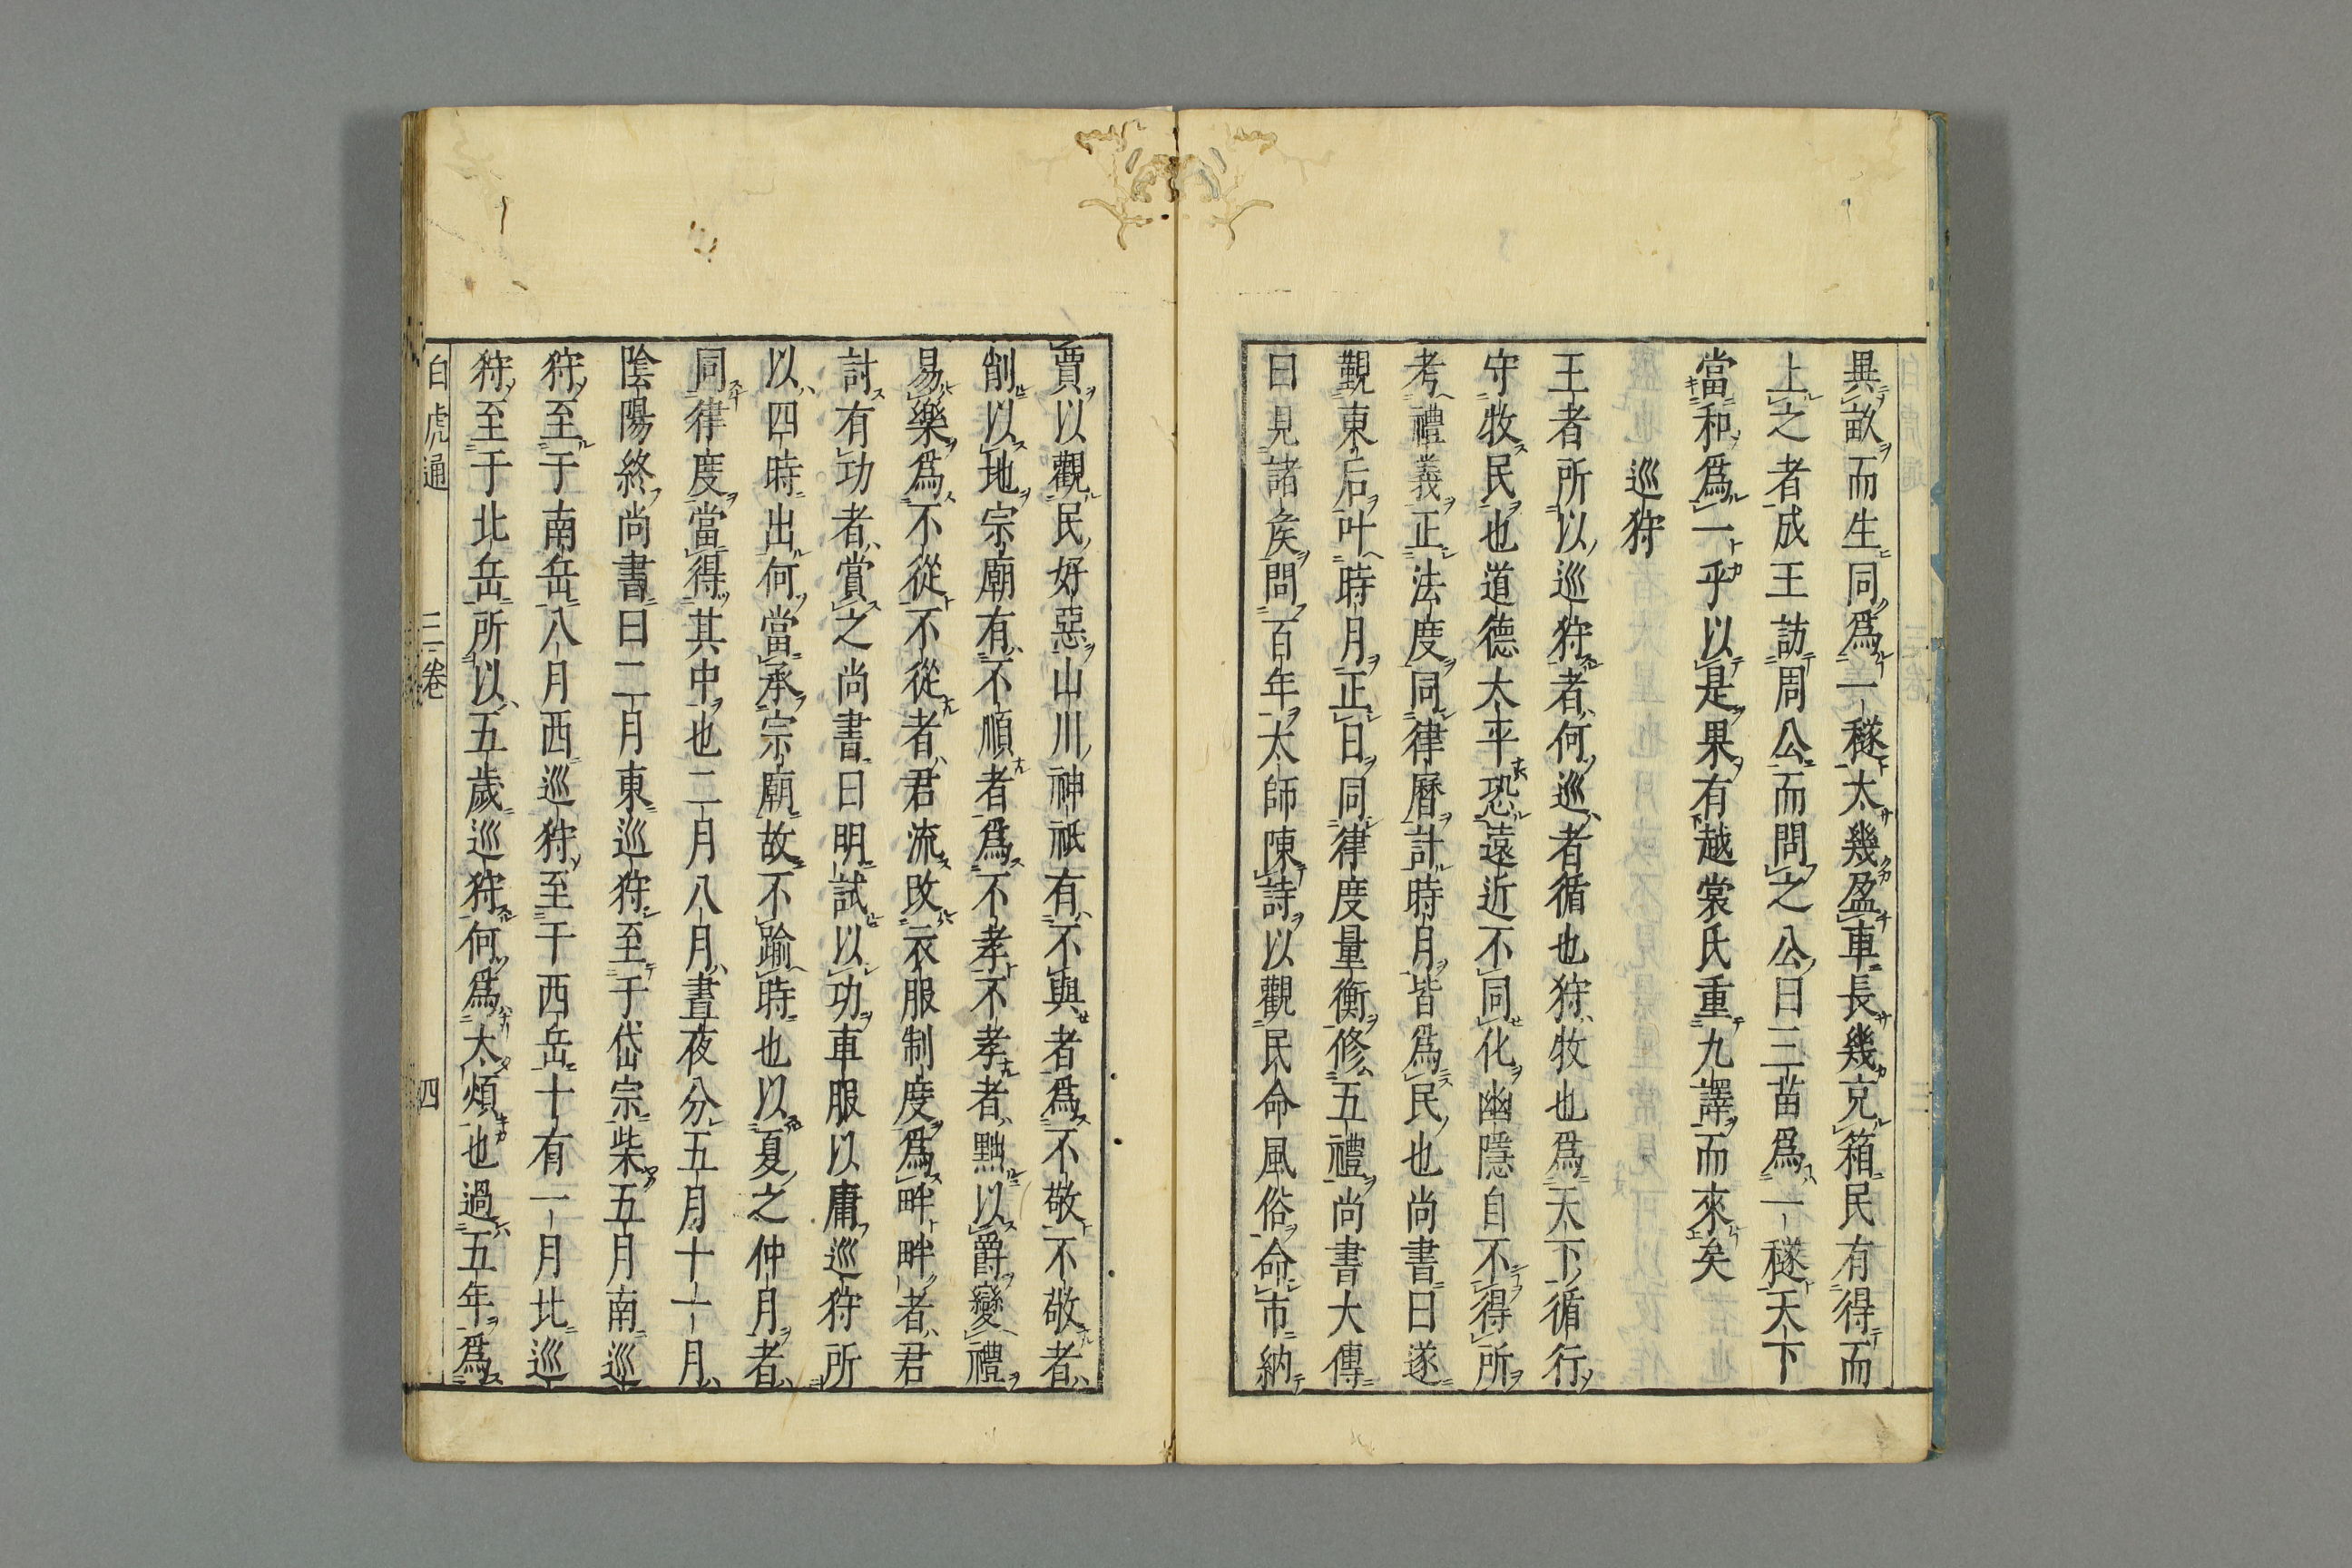 異畝而生同爲一穟大幾盈車長幾克箱民有得而
上之者成王訪周公而問之公曰三苗爲一穟天下
當和爲一乎以是果有越裳氏重九譯而來矣
巡狩
王者所以巡狩者何巡者循也狩牧也爲天下循行
守牧民也道德太平恐遠近不同化幽隱自不得所
考禮義正法度同律曆計時月皆爲民也尚書曰遂
覲東后叶時月正日同律度量衡修五禮尚書大傳
曰見諸矦問百年太師陳詩以觀民命風俗命市納
賈以觀民好惡山川神祇有不與者爲不敬不敬者
削以地宗廟有不順者爲不孝不孝者黜以爵變禮
易樂爲不從不從者君流改衣服制度爲畔畔者君
討有功者賞之尚書曰明試以功車服以庸巡狩所
以四時出何當承宗廟故不踰時也以夏之仲月者
同律度當得其中也二月八月晝夜分五月十一月
陰陽終尚書曰二月東巡狩至于岱宗柴五月南巡
狩至于南岳八月西巡狩至于西岳十有一月北巡
狩至于北岳所以五歲巡狩何爲太煩也過五年爲
白虎通 三卷 四